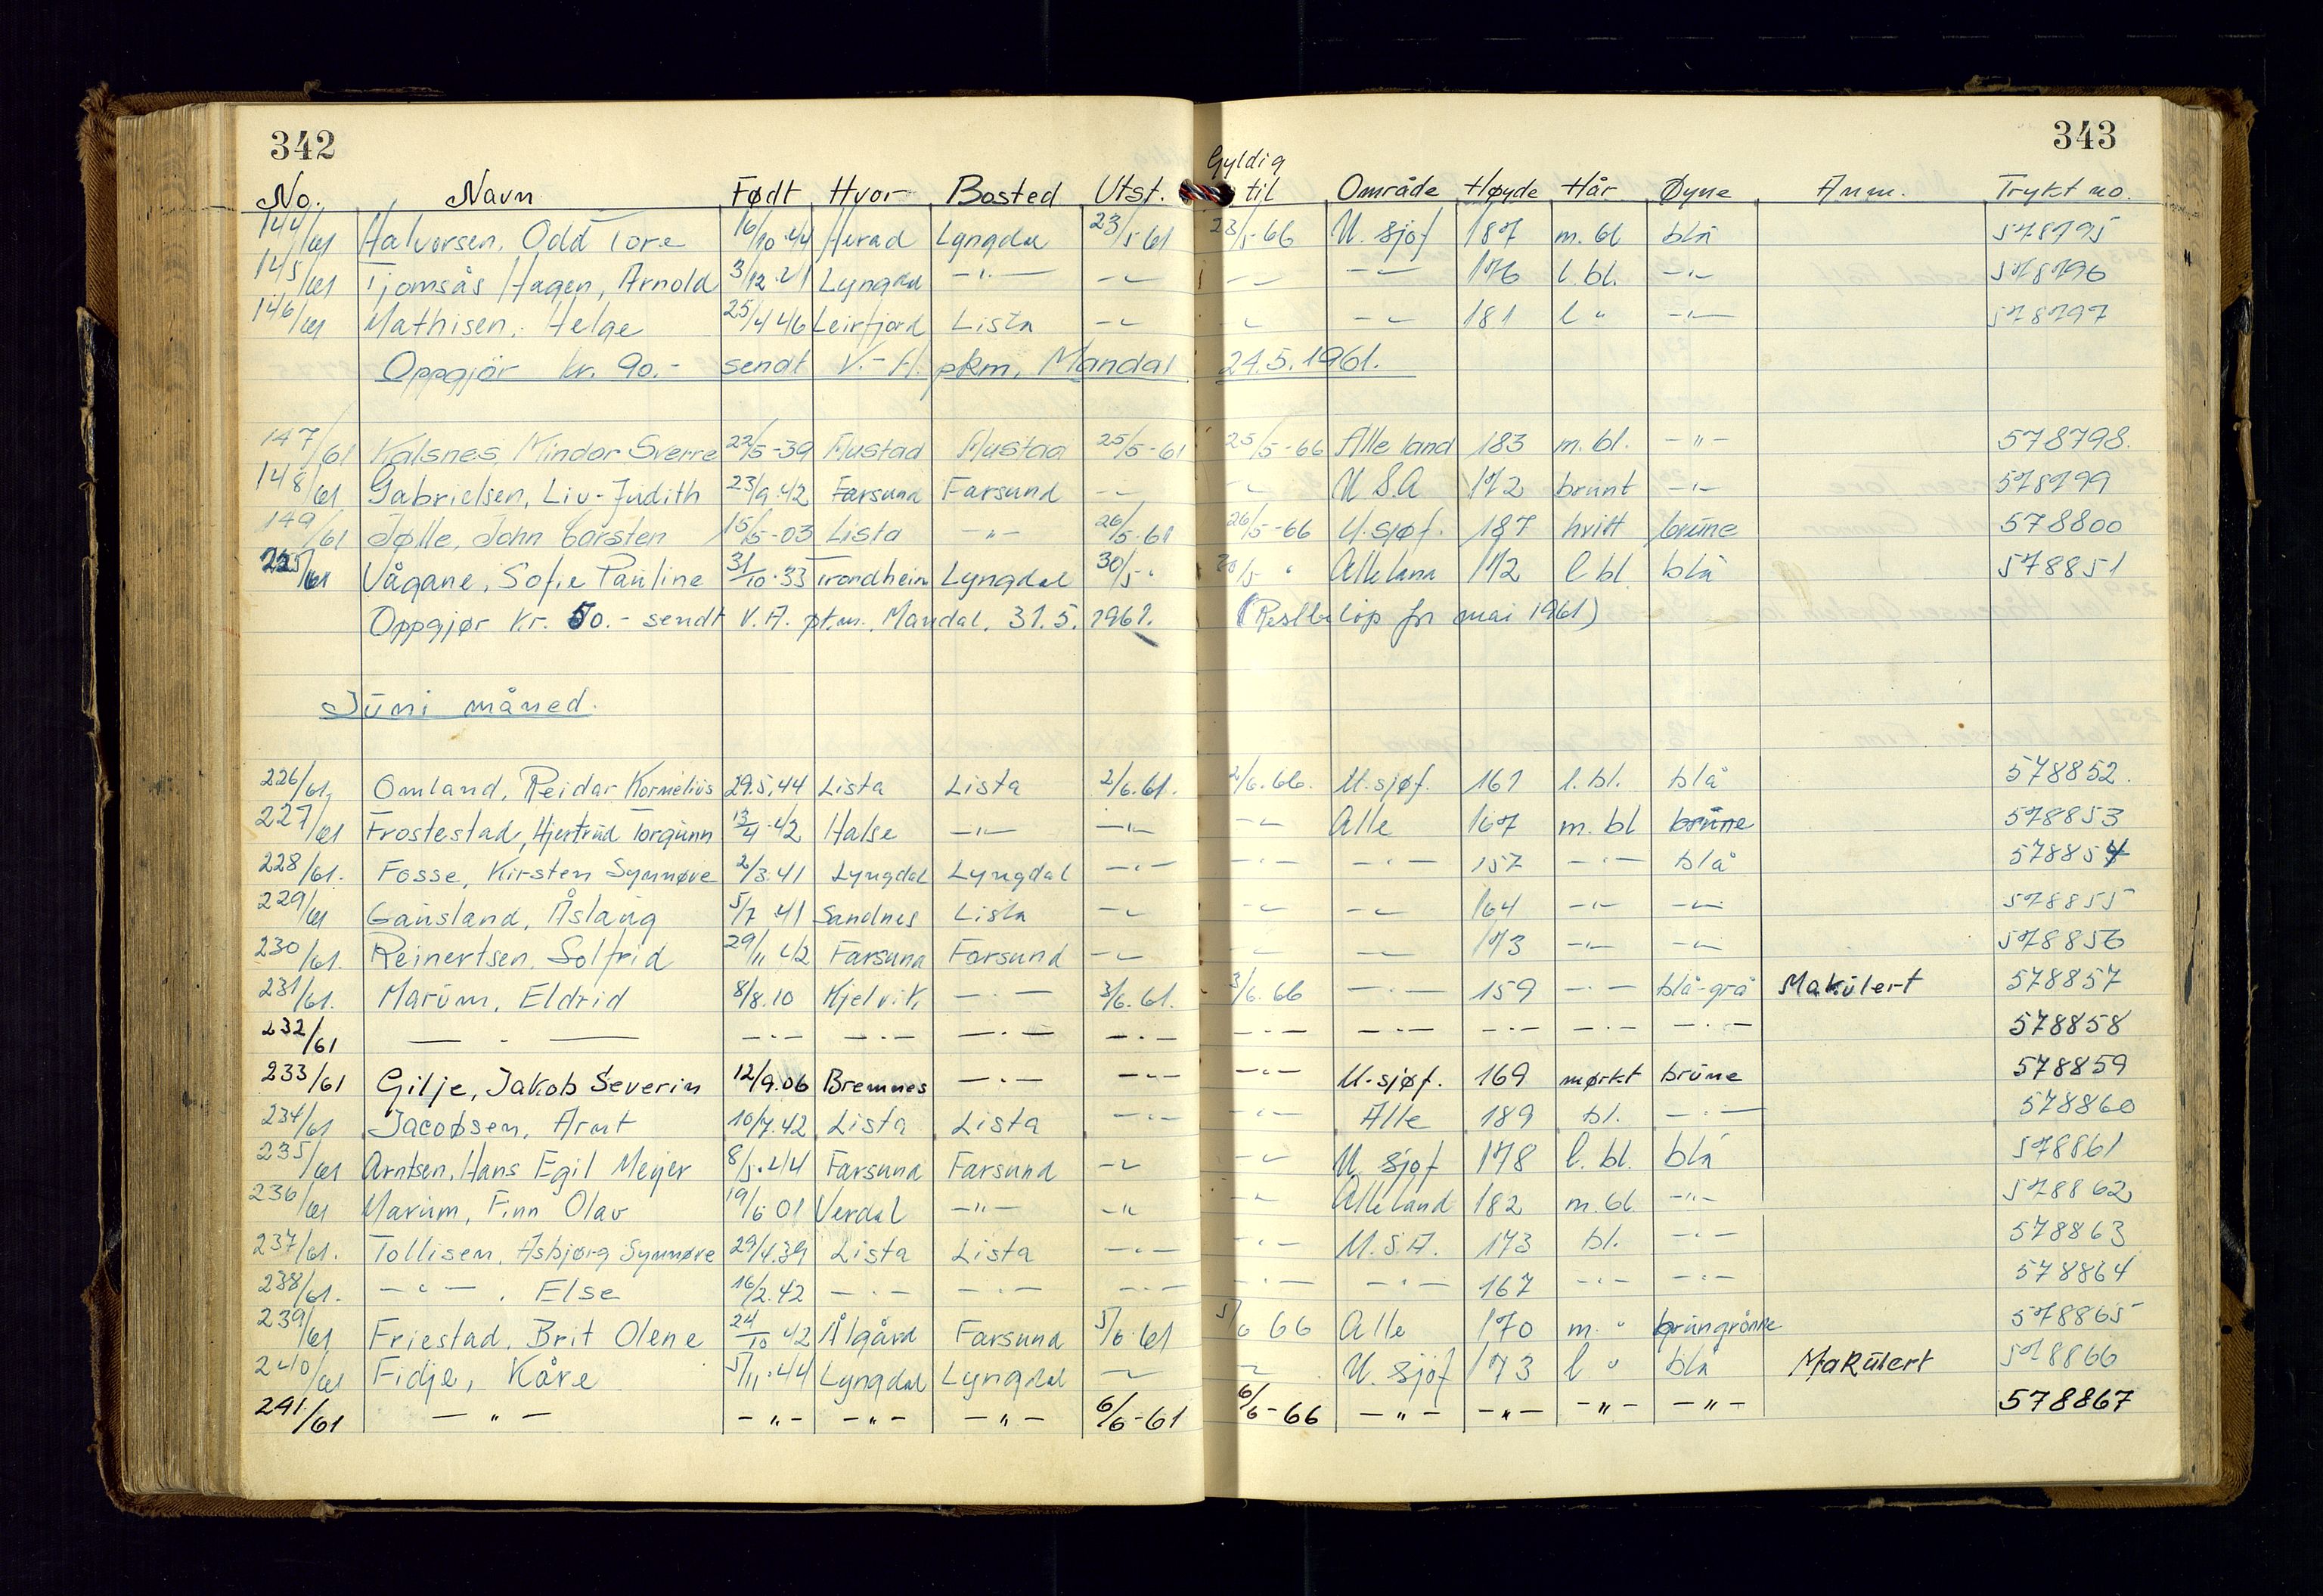 342 343
No. Navn Født Hvor Bosted Utst. Gyldig til Område Høyde Hår Øyne Anm. Trykt no.
144/61 Halvorsen, Odd Tore 16/10.44 Herad Lyngdal 23/5-61 23/5-66 U. sjøf 187 m. bl blå 578795
145/61 Tjomsås Hagen, Arnold 3/12.41 Lyngdal -"- -"- -"- -"- 176 l. bl. -"- 578796
146/61 Mathisen, Helge 25/4 46 Leirfjord Lista -"- -"- -"- 181 l " -"- 578797
Oppgjör kr. 90.- sendt V.-A. pkm. Mandal 24.5.1961.
147/61 Kalsnes, Mindor Sverre 22/5-39 Austad Austad 25/5-61 25/5-66 Alle land 183 m. bl. -"- 578798.
148/61 Gabrielsen, Liv-Judith 23/9.42 Farsund Farsund -"- -"- U.S.A 172 brunt -"- 578799
149/61 Jølle, John Carsten 15/5-03 Lista -"- 26/5-61 26/5-66 U. sjøf. 187 hvitt brune 578800
225/61 Vågane, Sofie Pauline 31/10.33 Trondheim Lyngdal 30/5 " 30/5 " Alle land 172 l bl. blå 578851
Oppgjør kr. 50.- sendt V.A. pk.m. Mandal. 31.5.1961. (Restbeløp for mai 1961)
Juni måned.
226/61. Omland, Reidar Kornelius 29.5.44 Lista Lista 2/6.61. 2/6.66. U. sjøf. 161 l. bl. blå 578852.
227/61 Frostestad, Hjertrud Torgunn 13/4.42 Halse -"- -"- -"- Alle 167 m. bl brune 578853
228/61. Fosse, Kirsten Synnøve 2/3.41 Lyngdal Lyngdal -"- -"- -"- 157 -"- blå 578854
229/61 Gausland, Åslaug 5/7.41 Sandnes Lista -"- -"- -"- 164 -"- -"- 578855
230/61. Reinertsen, Solfrid 29/11 42 Farsund Farsund -"- -"- -"- 173 -"- -"- 578856
231/61. Marum, Eldrid 8/8.10 Kjelvik -"- 3/6.61. 3/6.66 -"- 159 -"- blå-grå Makulert 578857
232/61 -"- -"- -"- -"- -"- -"- -"- -"- -"- -"- 578858
233/61 Gilje, Jakob Severin 12/9.06 Bremnes -"- -"- -"- U. sjøf. 169 mørkt brune 578859
234/61 Jacobsen, Arnt 10/7.42 Lista Lista -"- -"- Alle 189 bl. -"- 578860
235/61 Arntsen, Hans Egil Meyer 8/5.44 Farsund Farsund -"- -"- U. sjøf 178 l. bl. blå 578861
236/61 Marum, Finn Olav 19/6 01 Verdal -"- -"- -"- Alle land 182 m. bl -"- 578862
237/61. Tollisen, Asbjørg Synnøve 29/4.39 Lista Lista -"- -"- U.S.A. 173 bl. -"- 578863
238/61. -"- , Else 16/2.42 -"- -"- -"- -"- -"- 167 -"- -"- 578864
239/61 Friestad, Brit Olene 24/10 42 Ålgård Farsund 5/6.61 5/6 66 Alle 170 m. " brungrønne 578865
240/61 Fidje, Kåre 5/11.44 Lyngdal Lyngdal -"- -"- U. sjøf 173 l " blå Makulert 578866
241/61 -"- -"- -"- -"- 6/6-61 6/6-66 -"- -"- -"- -"- 578867